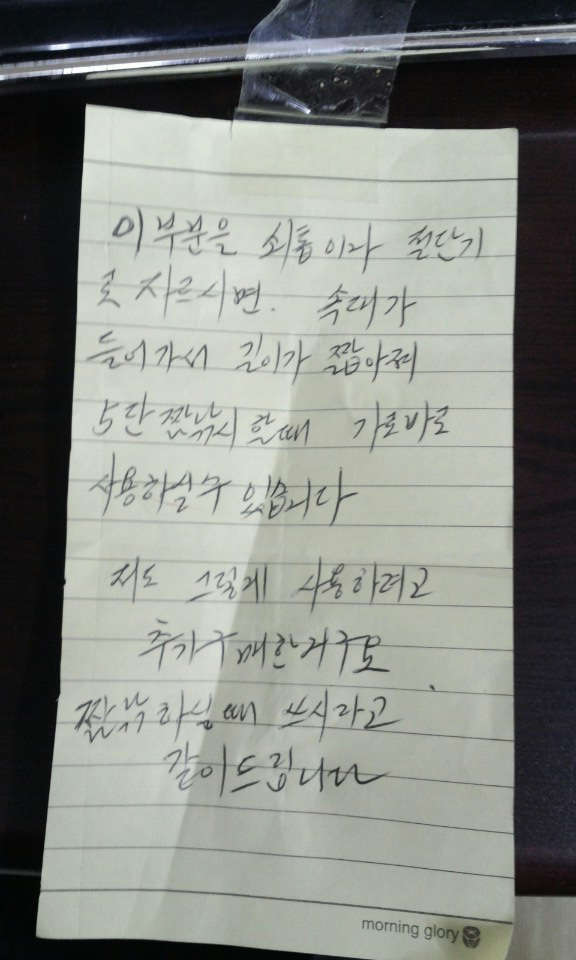 이 부분은 쇠톱이라 절단기
로 자르시면. 속대가
들어가서 길이가 짧아져
5단 짧낚시 할때 가로바로
사용하실수 있습니다
저도 그렇게 사용하려고
추가구매한거구요
짧낚 하실때 쓰시라고
같이드립니다
morning glory